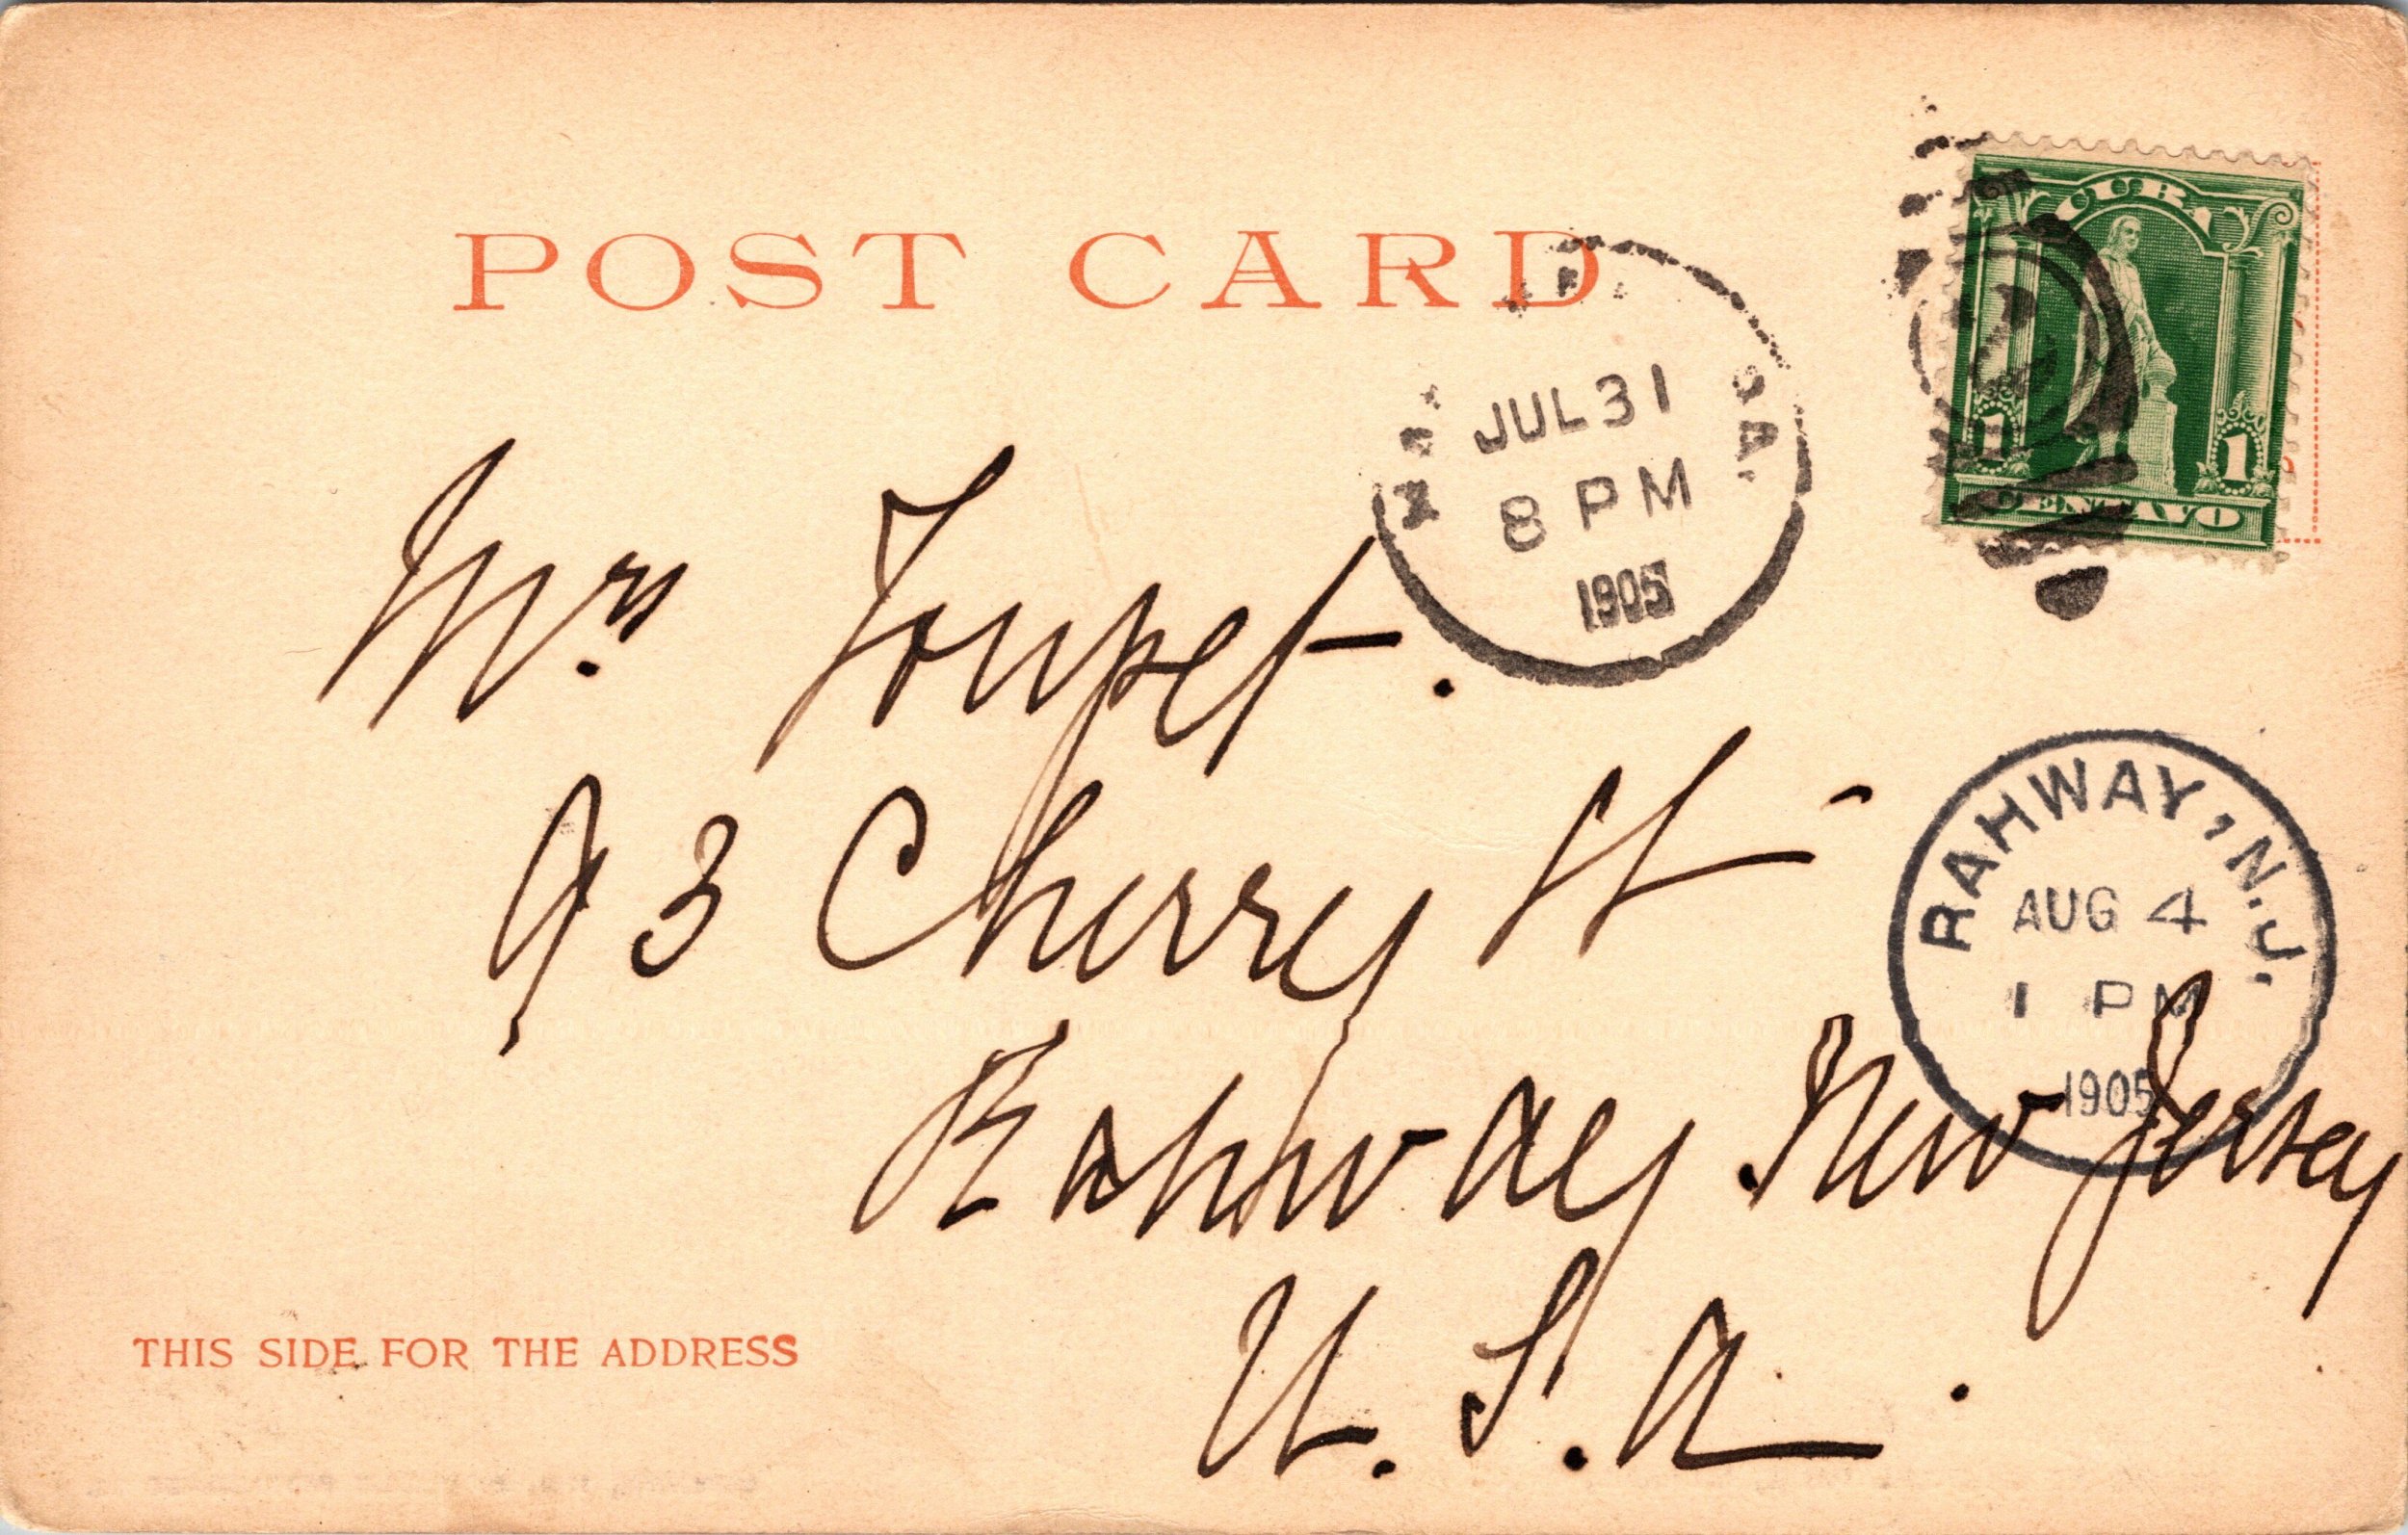 POST CARD
CUBA
1 1
CENTAVO
JUL 31
8 PM
1905
Mrs Toupet.
93 Cherry St
RAHWAY, N.J.
AUG 4
1 PM
1905
Rahway New Jersey
U.S.A.
THIS SIDE FOR THE ADDRESS